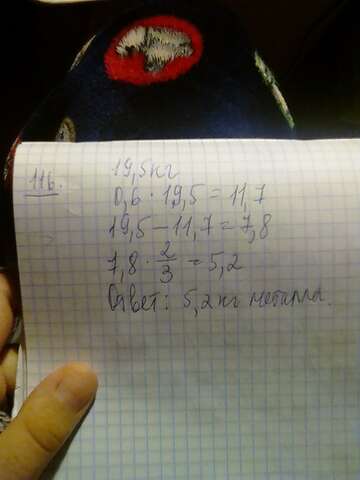 116.
19,5кг
0,6 · 19,5 = 11,7
19,5 - 11,7 = 7,8
7,8 · 2/3 = 5,2
Ответ: 5,2 кг металла.